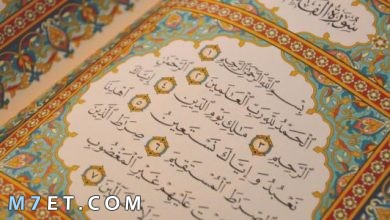 سورة الفا
بسم الله الرحمن الرحيم ١
الحمد لله رب العلمين ٢ الرحمن
الرحيم ٣ ملك يوم الدين ٤ إياك
نعبد وإياك نستعين ٥ اهدنا
المستقيم ٦ صرط
عليهم غير المغضوب
٧
M7ET.COM